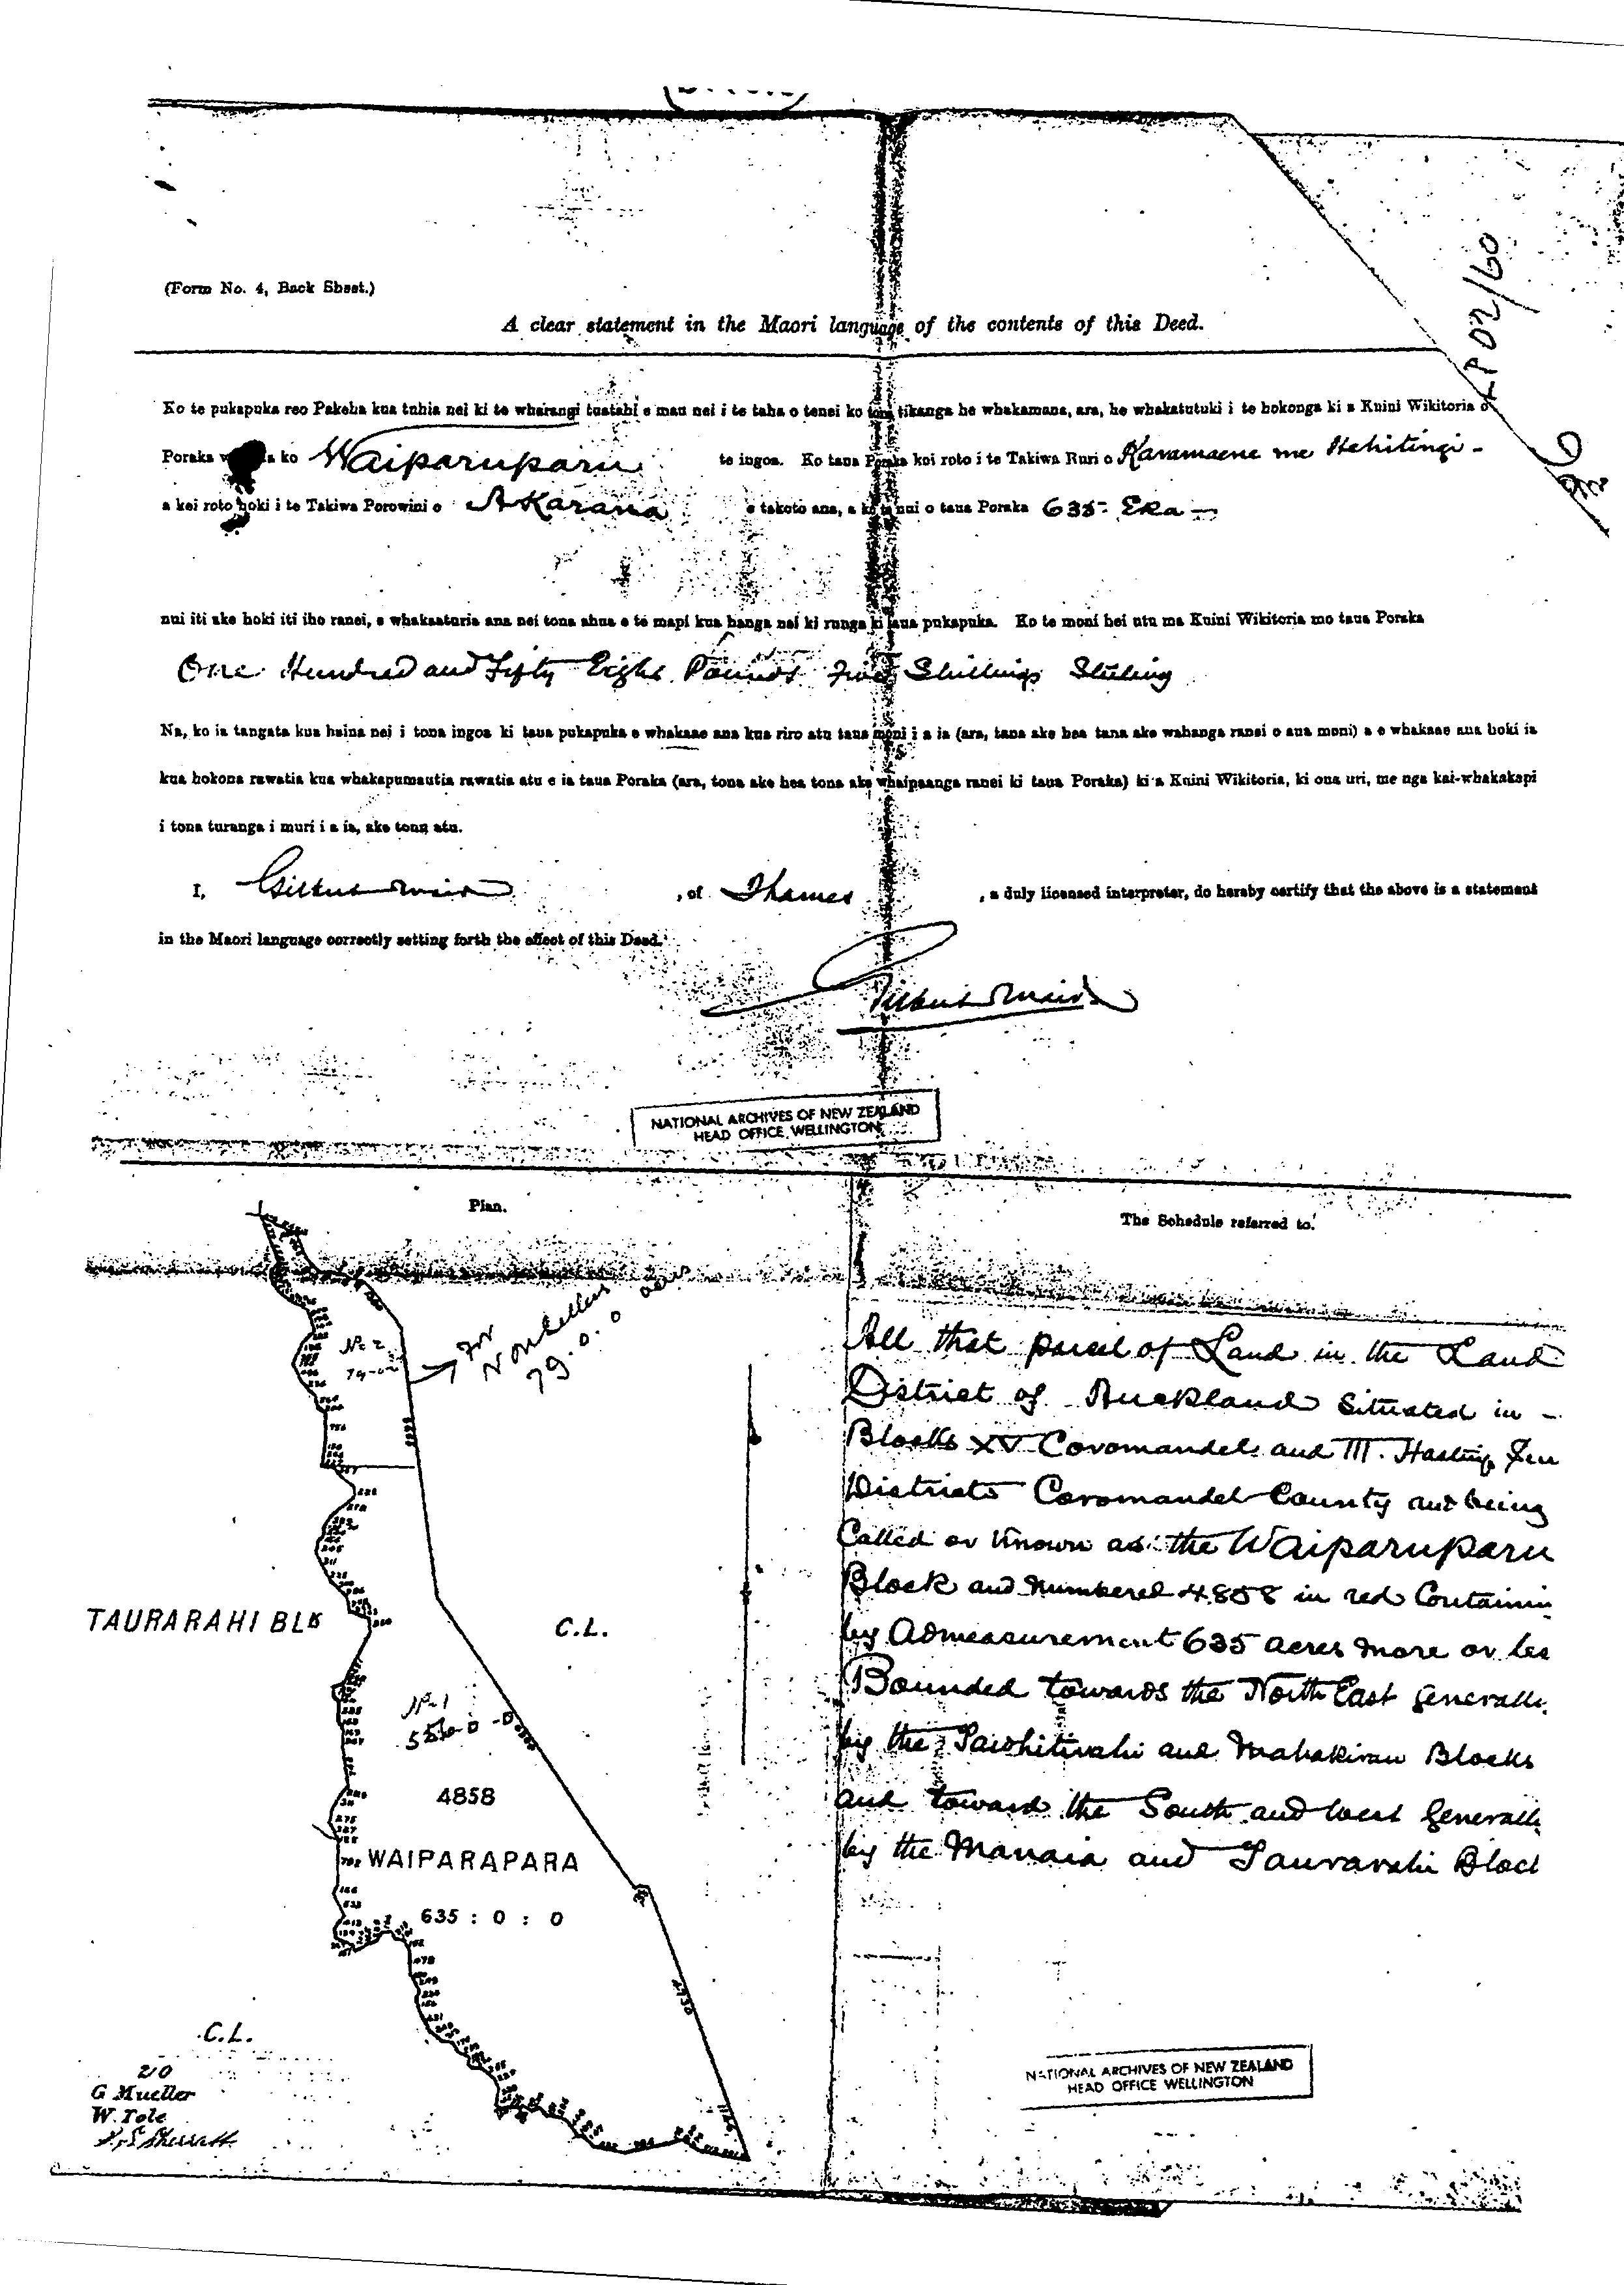 (Form No. 4, Back Sheet.)
A clear statement in the Maori language of the contents of this Deed.
Ko te pukapuka reo Pakeha kua tuhia nei ki te wharangi tuatahi e mau nei i te taha o tenei ko tona tikanga he whakamana, ara, he whakatutuki i te hokonga ki a Kuini Wikitoria o
Poraka ko Waiparuparu te ingoa. Ko taua Poraka kei roto i te Takiwa Ruri o Karamaene me Hehitingi -
a kei roto hoki i te Takiwa Porowini o Akarana e takoto ana, a ko te nui o taua Poraka 635 - Eka -
nui iti ake hoki iti iho ranei, e whakaaturia ana nei tona ahua e te mapi kua hanga nei ki runga ki taua pukapuka. Ko te moni hei utu ma Kuini Wikitoria mo taua Poraka
One Hundred and Fifty Eight Pounds Shillings Sterling
Na, ko ia tangata kua haina nei i tona ingoa ki taua pukapuka e whakaae ana kua riro atu taua moni i a ia (ara, tana ake hea tana ake wahanga ranei o aua moni) a e whakaae ana hoki ia
kua hokona rawatia kua whakapumautia rawatia atu e ia taua Poraka (ara, tona ake hea tona ake whaipaanga ranei ki taua Poraka) ki a Kuini Wikitoria, ki ona uri, me nga kai-whakakapi
i tona turanga i muri i a ia, ake tonu atu.
I, Gilbert Mair, of Thames, a duly licensed interpreter, do hereby certify that the above is a statement
in the Maori language correctly setting forth the effect of this Deed.
Gilbert Mair
NATIONAL ARCHIVES OF NEW ZEALAND
HEAD OFFICE WELLINGTON
Plan.
No 2
79-0-0
For
Nonsellers
79.0.0 acres
TAURARAHI BLK
C.L.
No 1
556-0-0
4858
WAIPARAPARA
635 : 0 : 0
4730
C.L.
210
G Mueller
W. Tole
The Schedule referred to.
All that parcel of Land in the Land
District of Auckland Situated in -
Blocks XV Coromandel and III. Hastings
Districts Coromandel County and being
Called or Known as the Waiparuparu
Block and Numbered 4858 in red Containin
by Admeasurement 635 acres more or les
Bounded towards the North East Generally
by the Tawhitirahi and Mahakirau Blocks
and toward the South and West Generally
by the Manaia and Taurarahi Block
NATIONAL ARCHIVES OF NEW ZEALAND
HEAD OFFICE WELLINGTON